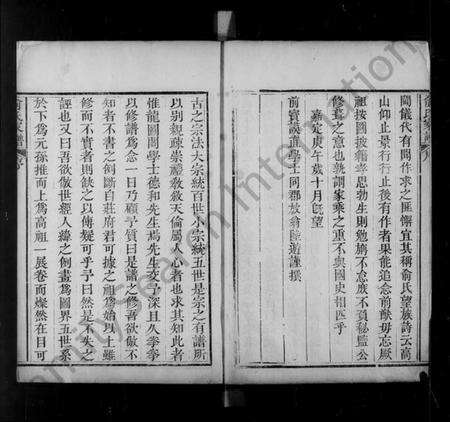 閥儀代有聞作求之匪懈宜其稱俞氏望族詩云高
山仰止景行行止後有作者果能追念前猷毋忘厥
祖按圖披籍孝思勃生則勉旃不愈庶不負秘監公
修輯之意也孰謂家乘之重不與國史相匹乎
嘉定庚午歲十月既望
前寶謨直學士同郡放翁陸游謹撰
古之宗法大宗統百世小宗統五世是宗之有譜所
以別親疎崇禮教敘天倫屬人心者也求其知此者
惟龍圖閣學士德和先生焉先生交予深且久拳拳
以修譜爲念一日乃顧予質曰是譜之修吾欲倣不
知者不書之例斷自莊府君可據之祖爲始以上雖
修而不實者則缺之以傳疑可乎予曰然是不失之
誣也又曰吾欲倣世經人緯之例畫爲圖界五世系
於下爲元孫推而上爲高祖一展卷而燦然在目可